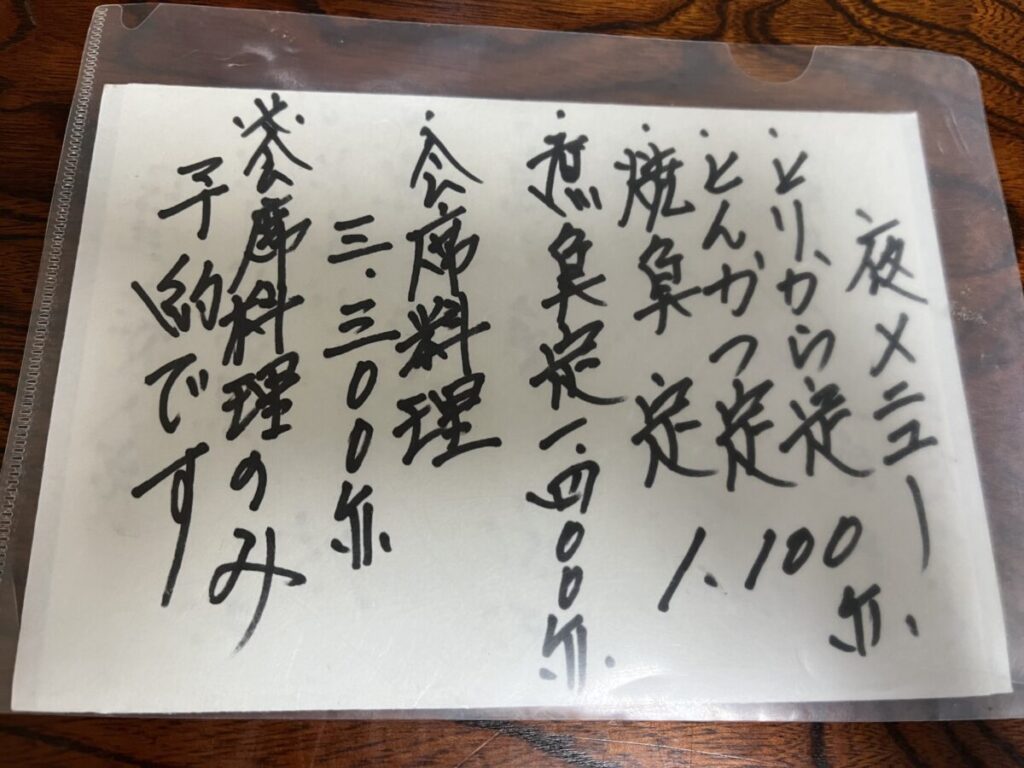 夜メニュー
・とりから定
・とんかつ定
・焼魚定
1.100円.
・煮魚定一.四〇〇円.
・会席料理
三.三〇〇円
※会席料理のみ
予約です